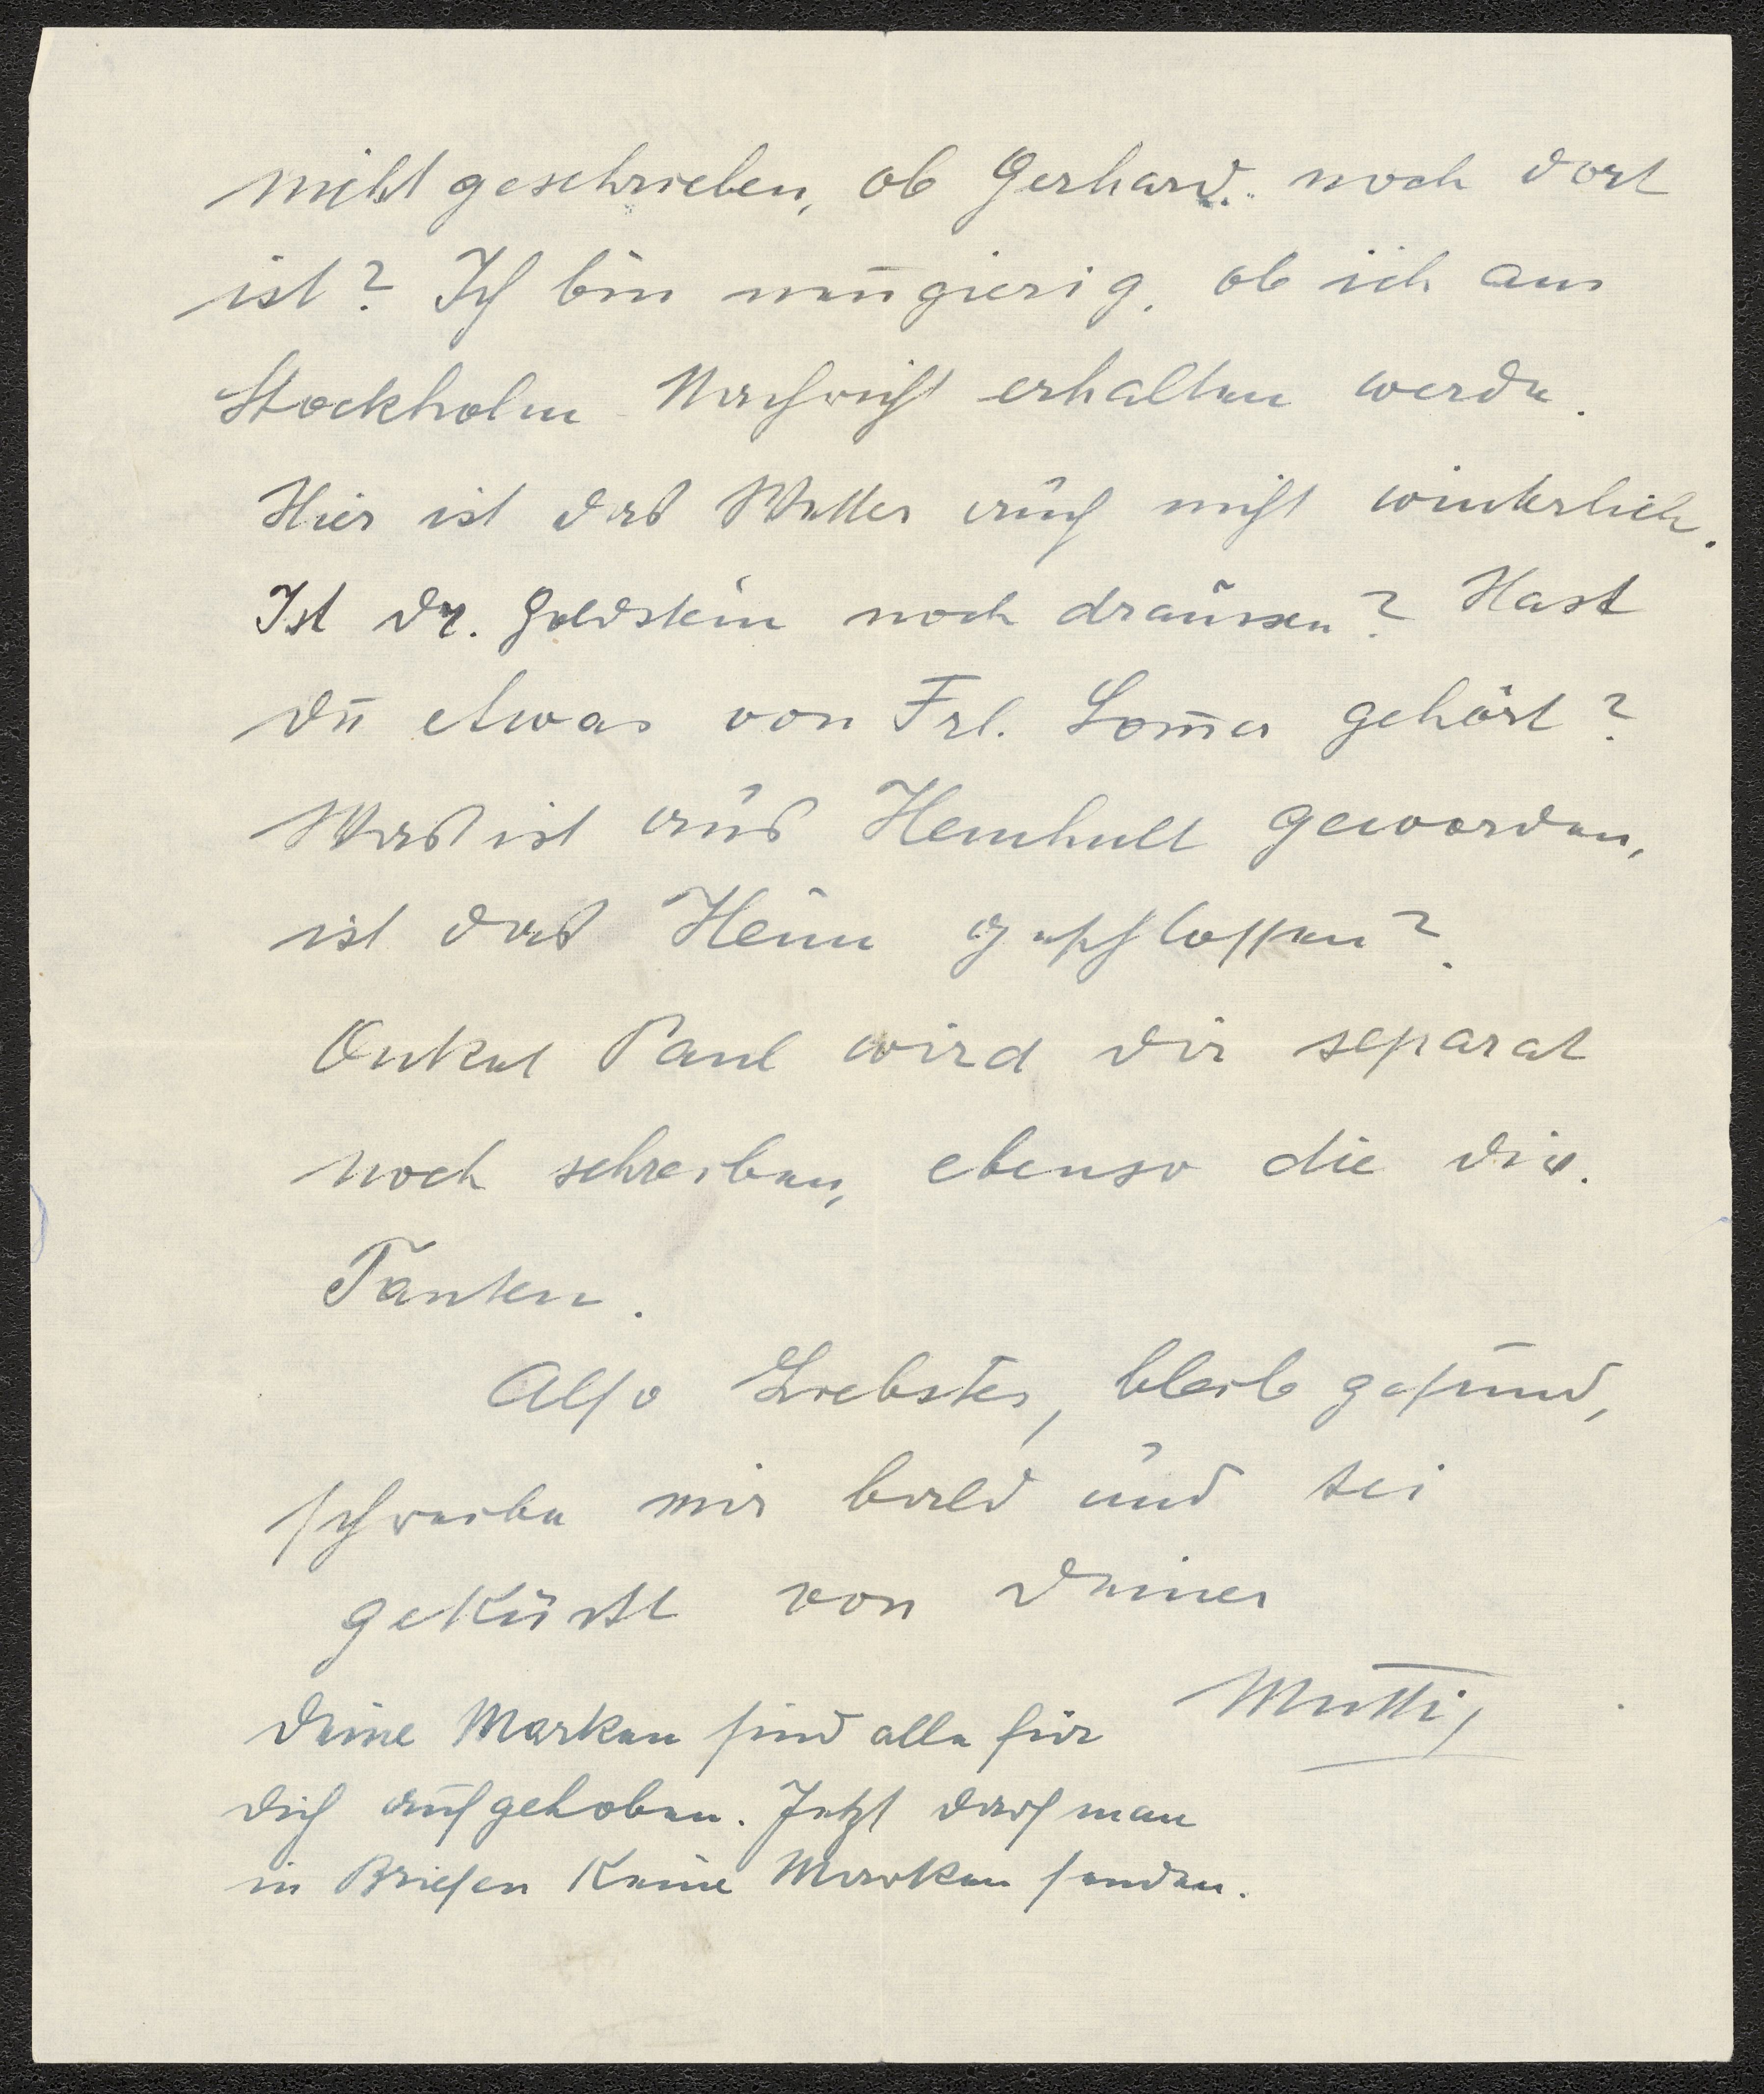 nicht geschrieben, ob Gerhard noch dort
ist? Ich bin neugierig, ob ich aus
Stockholm Nachricht erhalten werde.
Hier ist das Wetter auch nicht winterlich.
Ist Dr. Goldstein noch draussen? Hast
Du etwas von Frl. Lom̅er gehört?
Was ist aus Hemhult geworden,
ist das Heim geschlossen?
Onkel Paul wird Dir separat
noch schreiben, ebenso die div.
Tanten.
Also Liebster, bleib gesund,
schreibe mir bald und sei
geküsst von Deiner
Mutti,
Deine Marken sind alle für
Dich aufgehoben. Jetzt darf man
in Briefen keine Marken senden.